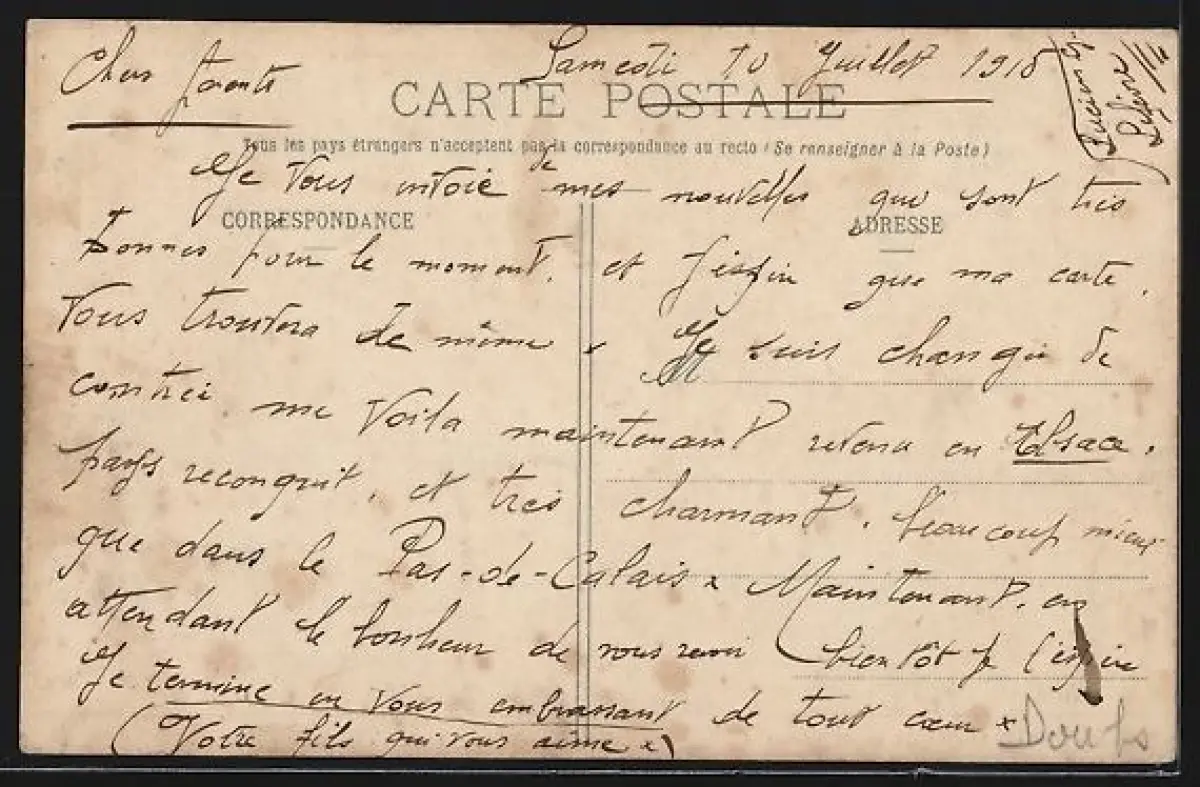 Chers parents
Samedi 10 Juillet 1915
CARTE POSTALE
Tous les pays étrangers n'acceptent pas la correspondance au recto (Se renseigner à la Poste)
Je vous envoie de mes nouvelles que sont très
CORRESPONDANCE
ADRESSE
bonnes pour le moment, et j'éspère que ma carte.
vous trouvera de même. Je suis changé de
contrée me voila maintenant revenu en Alsace,
pays reconquit, et très charmant, beaucoup mieux
que dans le Pas-de-Calais x Maintenant, en
attendant le bonheur de vous revoir bientôt je l'éspère
Je termine en vous embrassant de tout cœur x
(Votre fils qui vous aime x)
Doubs